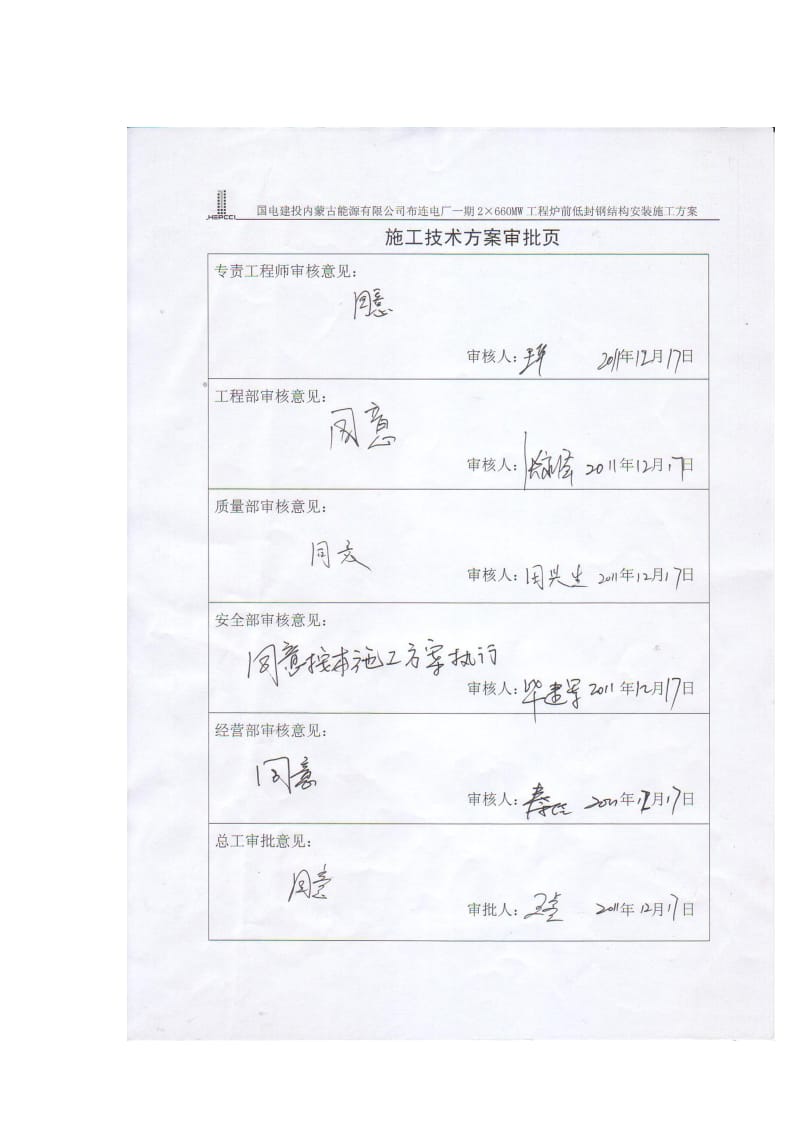 HEPCCI
国电建投内蒙古能源有限公司布连电厂一期2×660MW工程炉前低封钢结构安装施工方案
施工技术方案审批页
专责工程师审核意见：
同意
审核人： 2011年12月17日
工程部审核意见：
同意
审核人： 2011年12月17日
质量部审核意见：
同意
审核人：周兴生 2011年12月17日
安全部审核意见：
同意按本施工方案执行
审核人：毕建军 2011年12月17日
经营部审核意见：
同意
审核人： 2011年12月17日
总工审批意见：
同意
审批人： 2011年12月17日